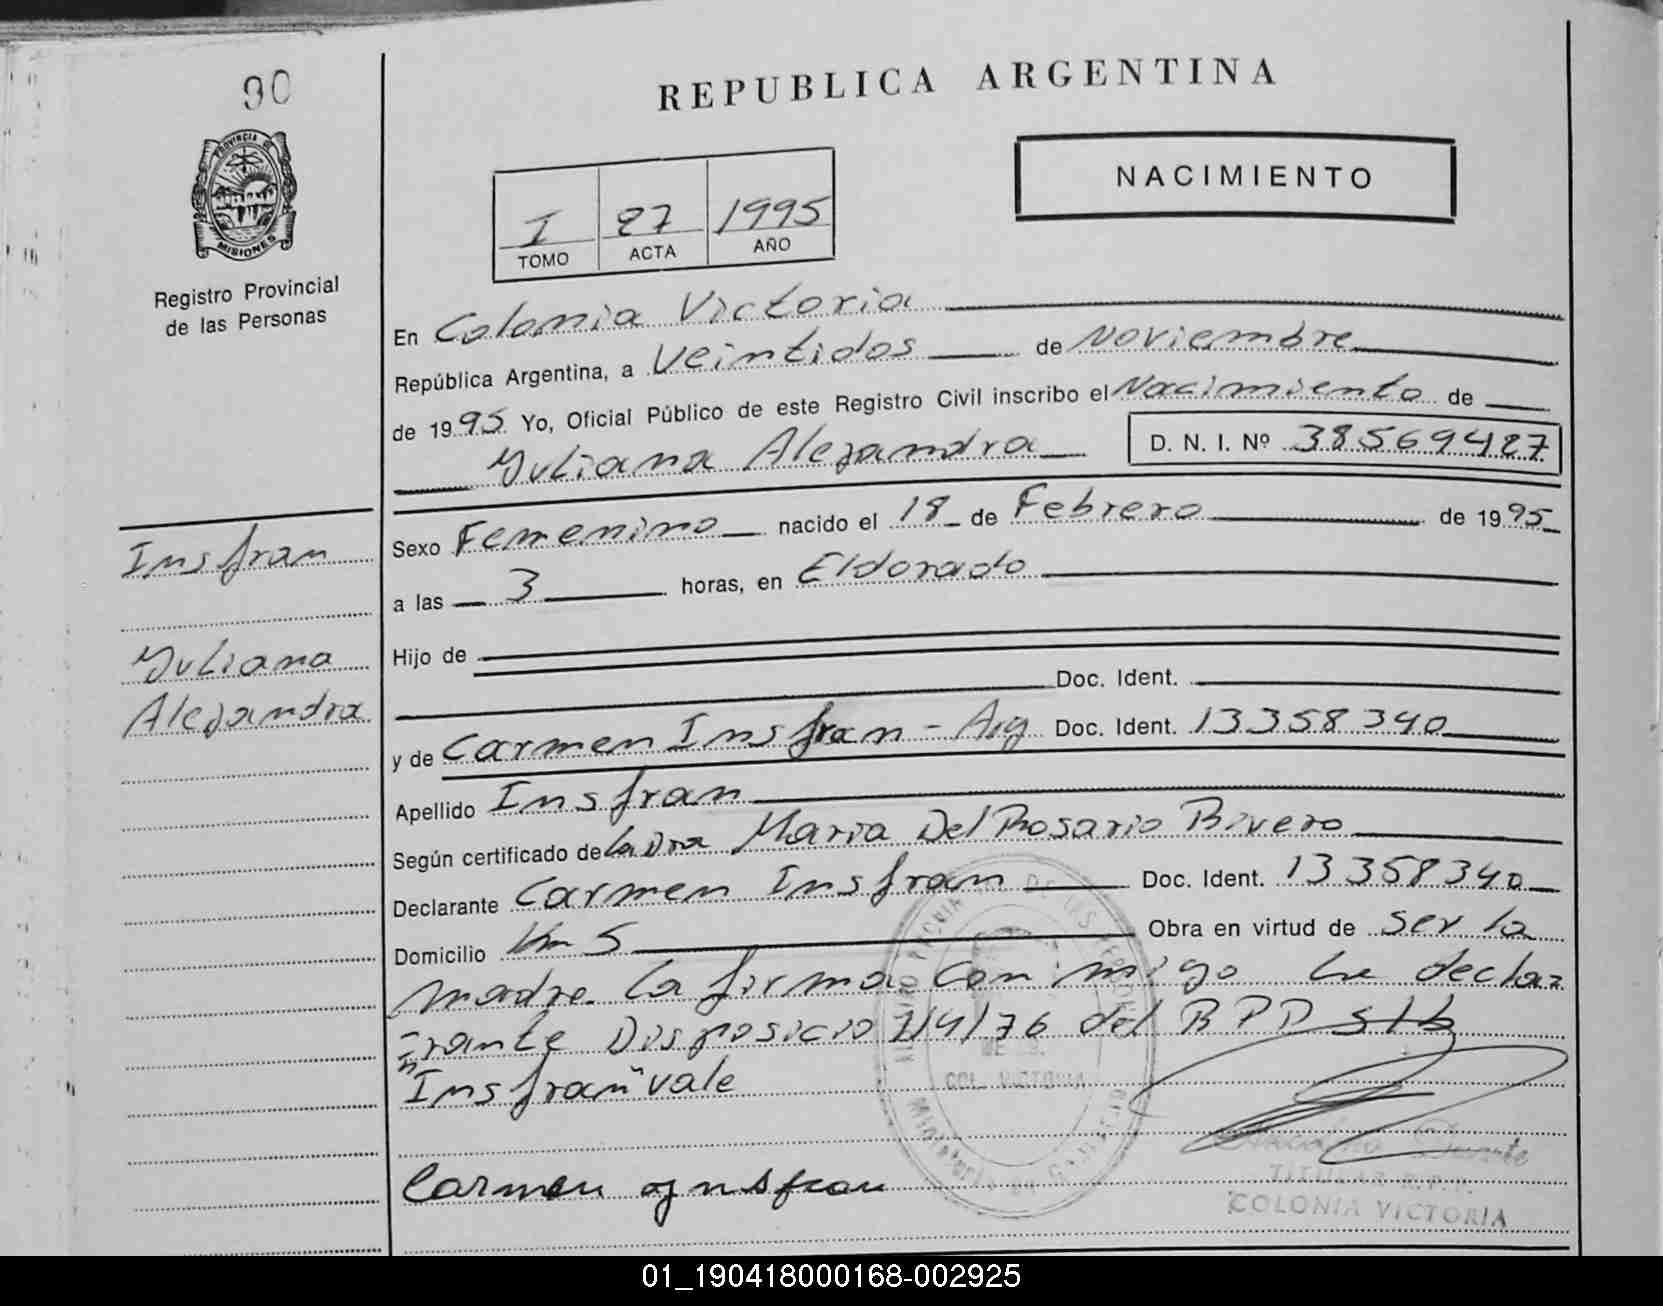 90
REPUBLICA ARGENTINA
PROVINCIA DE
MISIONES
NACIMIENTO
I 27 1995
TOMO ACTA AÑO
Registro Provincial
de las Personas
En Colonia Victoria
República Argentina, a Veintidos de Noviembre
de 1995 Yo, Oficial Público de este Registro Civil inscribo el Nacimiento de
Yuliana Alejandra D. N. I. Nº 38569427
Insfran
Sexo Femenino nacido el 18 de Febrero de 1995
a las 3 horas, en Eldorado
Yuliana
Alejandra
Hijo de
Doc. Ident.
y de Carmen Insfran - Arg Doc. Ident. 13358340
Apellido Insfran
Según certificado de la Dra Maria Del Rosario Rivero
Declarante Carmen Insfran Doc. Ident. 13358340
Domicilio Km 5 Obra en virtud de ser la
madre. La firma con migo la decla=
rante Disposicio 7/4/76 del R P P s/b
"Insfran" vale
COL. VICTORIA
Carmen Insfran
Duarte
TITULAR R.P.P.
COLONIA VICTORIA
01_190418000168-002925